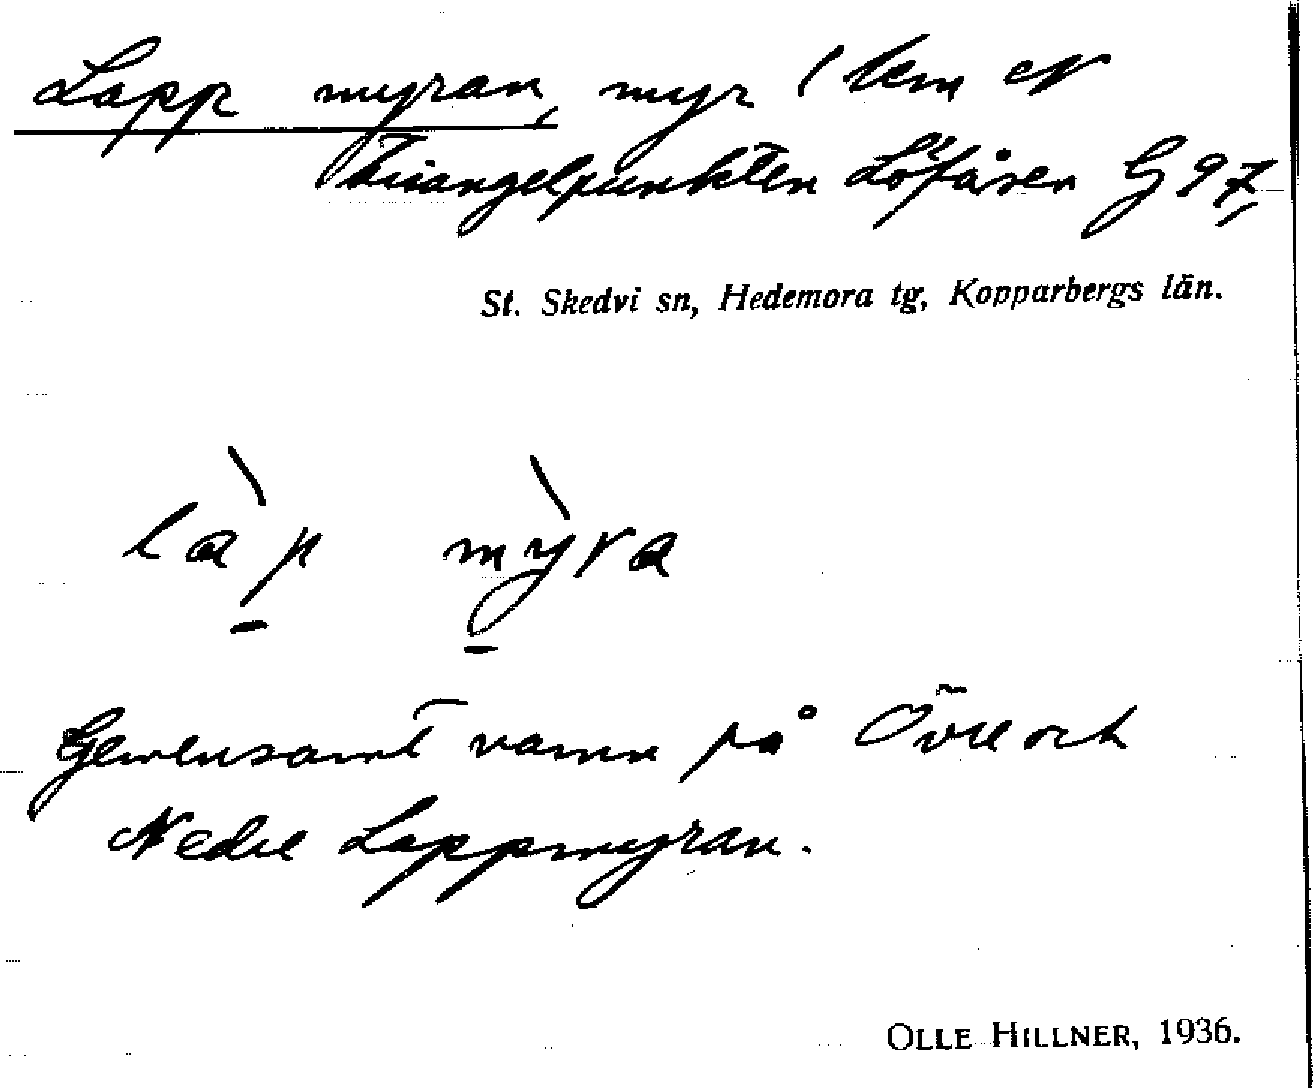 Lapp myran, myr 1 km N
triangelpunkten Löfåsen G 97,
St. Skedvi sn, Hedemora tg, Kopparbergs län.
làp mỳra
Gemensamt namn på Övre och
Nedre Lappmyran.
OLLE HILLNER, 1936.